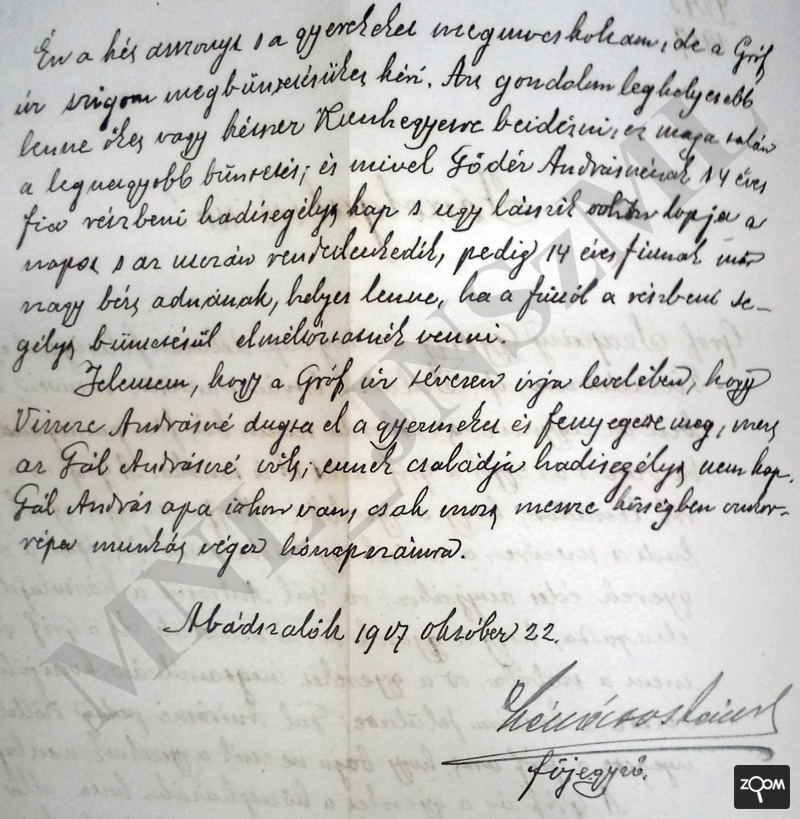 Én a két asszonyt s a gyerekeket megmocskoltam, de a Gróf
úr szigorú megbüntetésüket kéri. Azt gondolom leghelyesebb
lenne őket vagy kétszer Kunhegyesre beidézni, ez maga talán
a legnagyobb büntetés; és mivel Gődér Andrásnénak 14 éves
fia részbeni hadisegélyt kap s ugy látszik otthon lopja a
napot s az uccán rendetlenkedik, pedig 14 éves fiunak már
nagy bért adnának, helyes lenne, ha a fiútól a részbeni se-
gélyt büntetésül elméltóztatnék venni.
Jelentem, hogy a Gróf úr tévesen írja levelében, hogy
Vincze Andrásné dugta el a gyermeket és fenyegette meg, mert
az Gál Andrásné volt; ennek családja hadisegélyt nem kap.
Gál András apa itthon van, csak most messze községben cukor-
répa munkát végez hónapszámra.
Abádszalók 1917 október 22.
főjegyző.
MNL JNSZML
ZOOM